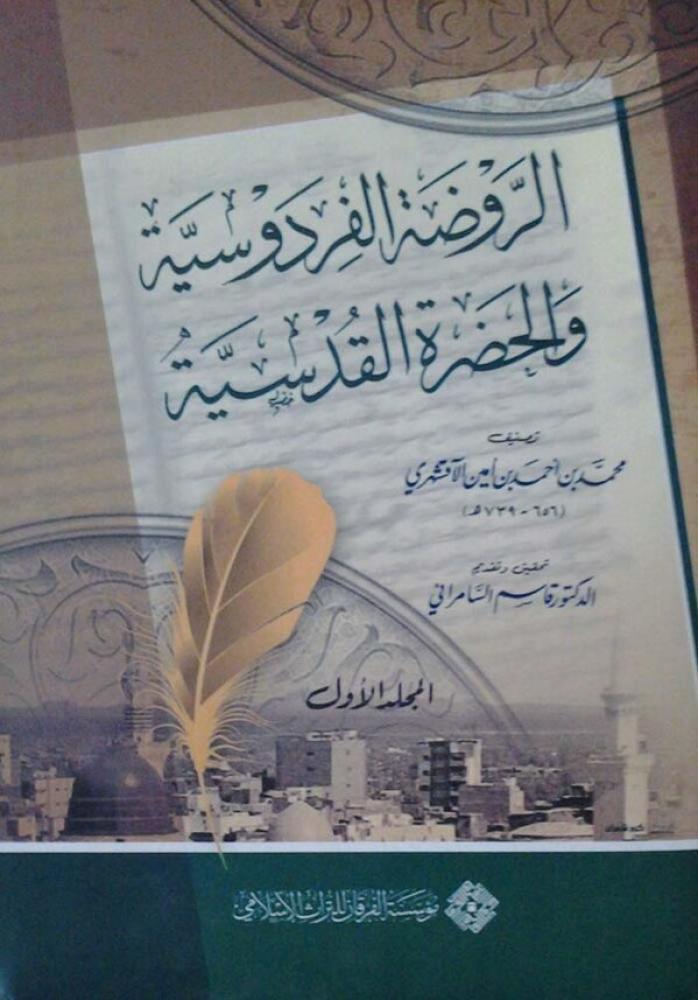 الرَّوْضَة الفِرْدَوْسيَّة
وَالحَضْرَة القُدْسيَّةُ
تصنيف
محمّد بن أحمد بن أمين الآقشهري
(٦٥٦ - ٧٣٩ هـ)
تحقيق وتقديم
الدكتور قاسم السَّامرائي
المجلد الأول
مؤسسة الفرقان للتراث الإسلامي